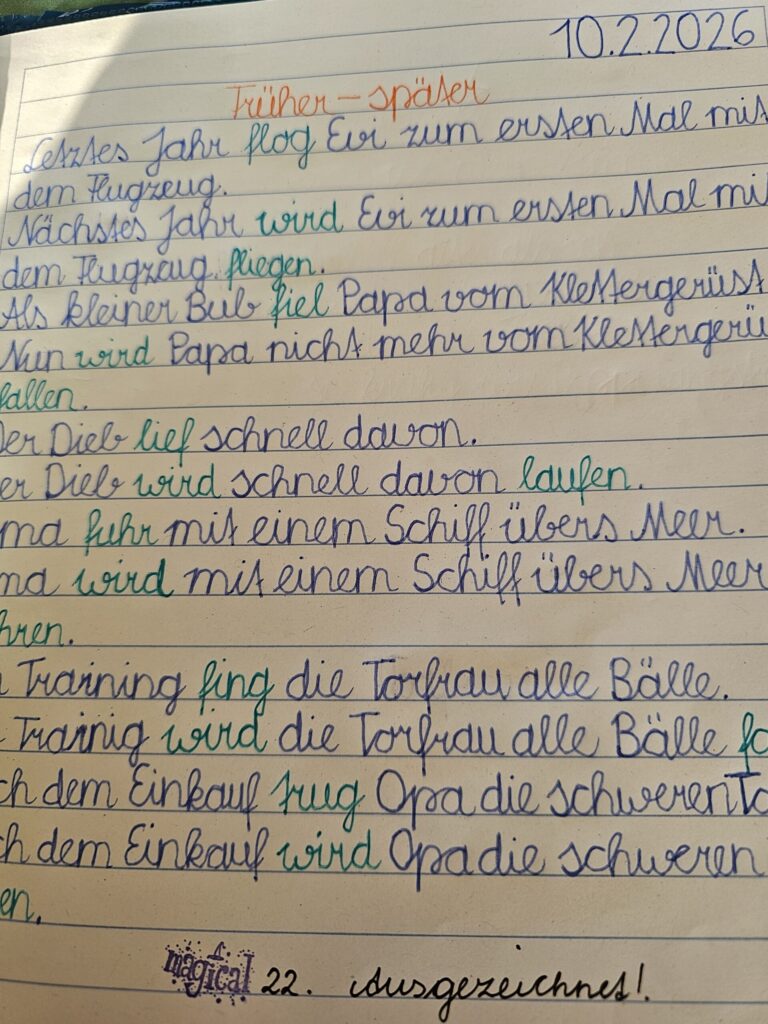 10.2.2026
Früher – später
Letztes Jahr flog Evi zum ersten Mal mit
dem Flugzeug.
Nächstes Jahr wird Evi zum ersten Mal mi
dem Flugzeug fliegen.
Als kleiner Bub fiel Papa vom Klettergerüst
Nun wird Papa nicht mehr vom Klettergerü
fallen.
Der Dieb lief schnell davon.
er Dieb wird schnell davon laufen.
ma fuhr mit einem Schiff übers Meer.
ma wird mit einem Schiff übers Meer
hren.
Training fing die Torfrau alle Bälle.
Trainig wird die Torfrau alle Bälle fa
ch dem Einkauf trug Opa die schweren Ta
ch dem Einkauf wird Opa die schweren
en.
magical 22. Ausgezeichnet!